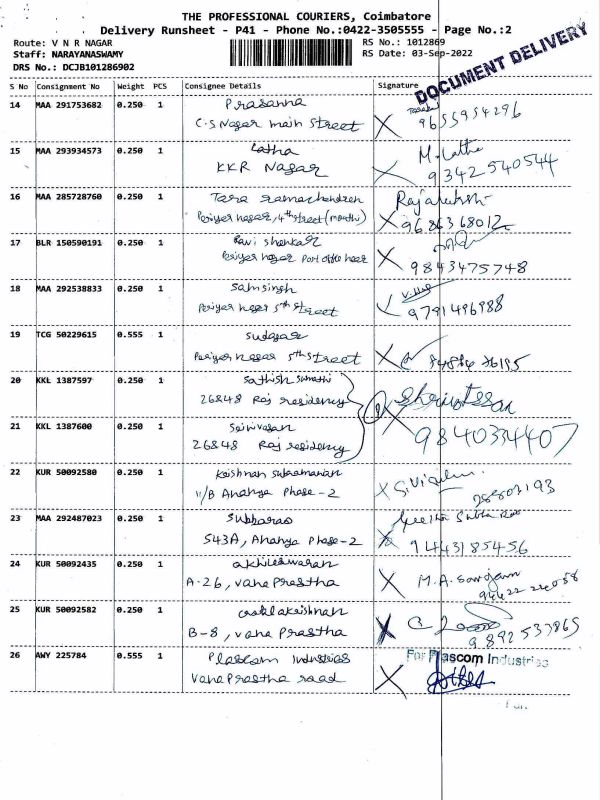 THE PROFESSIONAL COURIERS, Coimbatore
Delivery Runsheet - P41 - Phone No.:0422-3505555 - Page No.:2
Route: V N R NAGAR
RS No.: 1012869
Staff: NARAYANASWAMY
RS Date: 03-Sep-2022
DRS No.: DCJB101286902
DOCUMENT DELIVERY
S No Consignment No Weight PCS Consignee Details Signature
14 MAA 291753682 0.250 1 Prasanna
C.S Nagar main Street 9655954296
15 MAA 293934573 0.250 1 Latha M. Latha
KKR Nagar 9342540544
16 MAA 285728760 0.250 1 Tara ramachandren
Periyar nagar, 4th Street 9686368012
17 BLR 150590191 0.250 1 Ravi Shenkar
Periyar nagar Port office near 9843475748
18 MAA 292538833 0.250 1 Samsingh
Periyar nagar 5th Street 9791496988
19 TCG 50229615 0.555 1
Periyar nagar 5th Street
20 KKL 1387597 0.250 1 Sathish
26848 Raj residency
21 KKL 1387600 0.250 1 Srinivasan
26848 Raj residency 9840334407
22 KUR 50092580 0.250 1 Krishnan Subramanian
11/B Ananya Phase-2
23 MAA 292487023 0.250 1 Subbarao
543A, Ananya Phase-2 9443185456
24 KUR 50092435 0.250 1 akhileswaran
A-26, Vana Prastha
25 KUR 50092582 0.250 1
B-8, Vana Prastha 9892533865
26 AWY 225784 0.555 1 Plascom Industries For Plascom Industries
Vana Prastha road